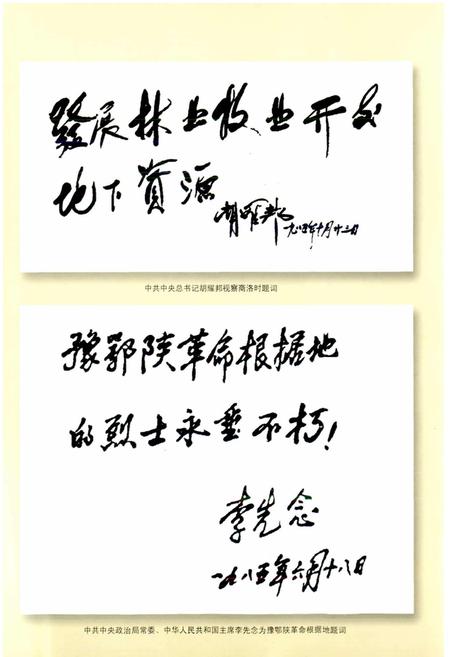 發展林业牧业开发
地下资源
胡耀邦 一九八四年十月十三日
中共中央总书记胡耀邦视察商洛时题词
豫鄂陕革命根据地
的烈士永垂不朽!
李先念
一九八五年六月十八日
中共中央政治局常委、中华人民共和国主席李先念为豫鄂陕革命根据地题词